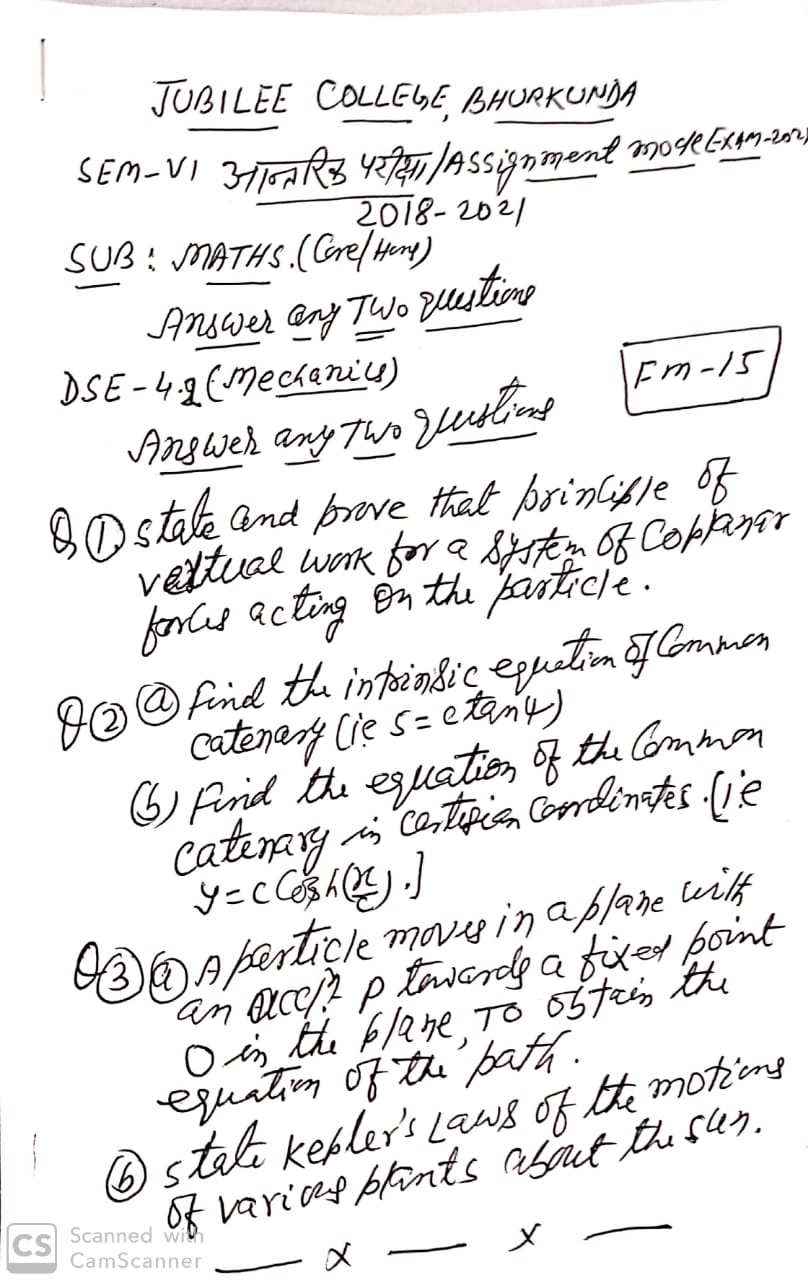 JUBILEE COLLEGE, BHURKUNDA
SEM-VI आन्तरिक परीक्षा/Assignment mode Exam-2021
2018-2021
SUB: MATHS.(Core/Hons)
Answer any Two questions
DSE-4.2 (Mechanics)
Fm-15
Answer any Two questions
Q ① state and prove that principle of
vertual work for a system of Copplanar
forces acting on the particle.
Q② ⓐ find the intrinsic equation of Common
catenary (ie s=ctanψ)
(b) Find the equation of the Common
catenary in cartesian Coordinates.(i.e
y=c Cosh(x/c).]
Q③ ⓐ A particle moves in a plane with
an accⁿ P towards a fixed point
O in the plane, To obtain the
equation of the path.
ⓑ state kepler's Laws of the motions
of various plants about the sun.
— x — x —
CS Scanned with
CamScanner